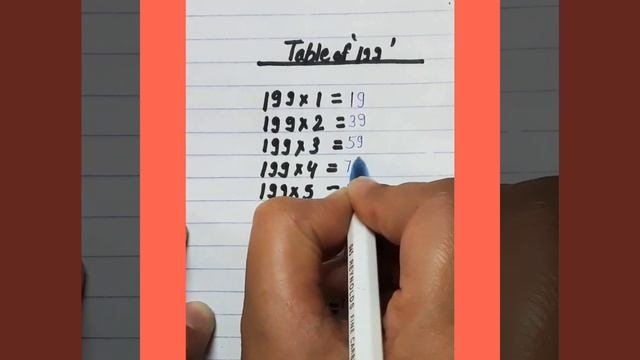 Table of '199'
199 x 1 = 19
199 x 2 = 39
199 x 3 = 59
199 x 4 = 7
199 x 5 =
REYNOLDS FINE CARB